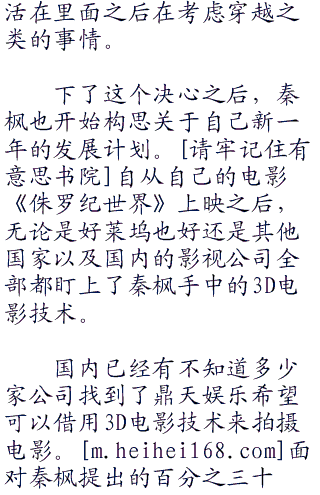 活在里面之后在考虑穿越之
类的事情。
下了这个决心之后，秦
枫也开始构思关于自己新一
年的发展计划。[请牢记住有
意思书院]自从自己的电影
《侏罗纪世界》上映之后，
无论是好莱坞也好还是其他
国家以及国内的影视公司全
部都盯上了秦枫手中的3D电
影技术。
国内已经有不知道多少
家公司找到了鼎天娱乐希望
可以借用3D电影技术来拍摄
电影。[m.heihei168.com]面
对秦枫提出的百分之三十